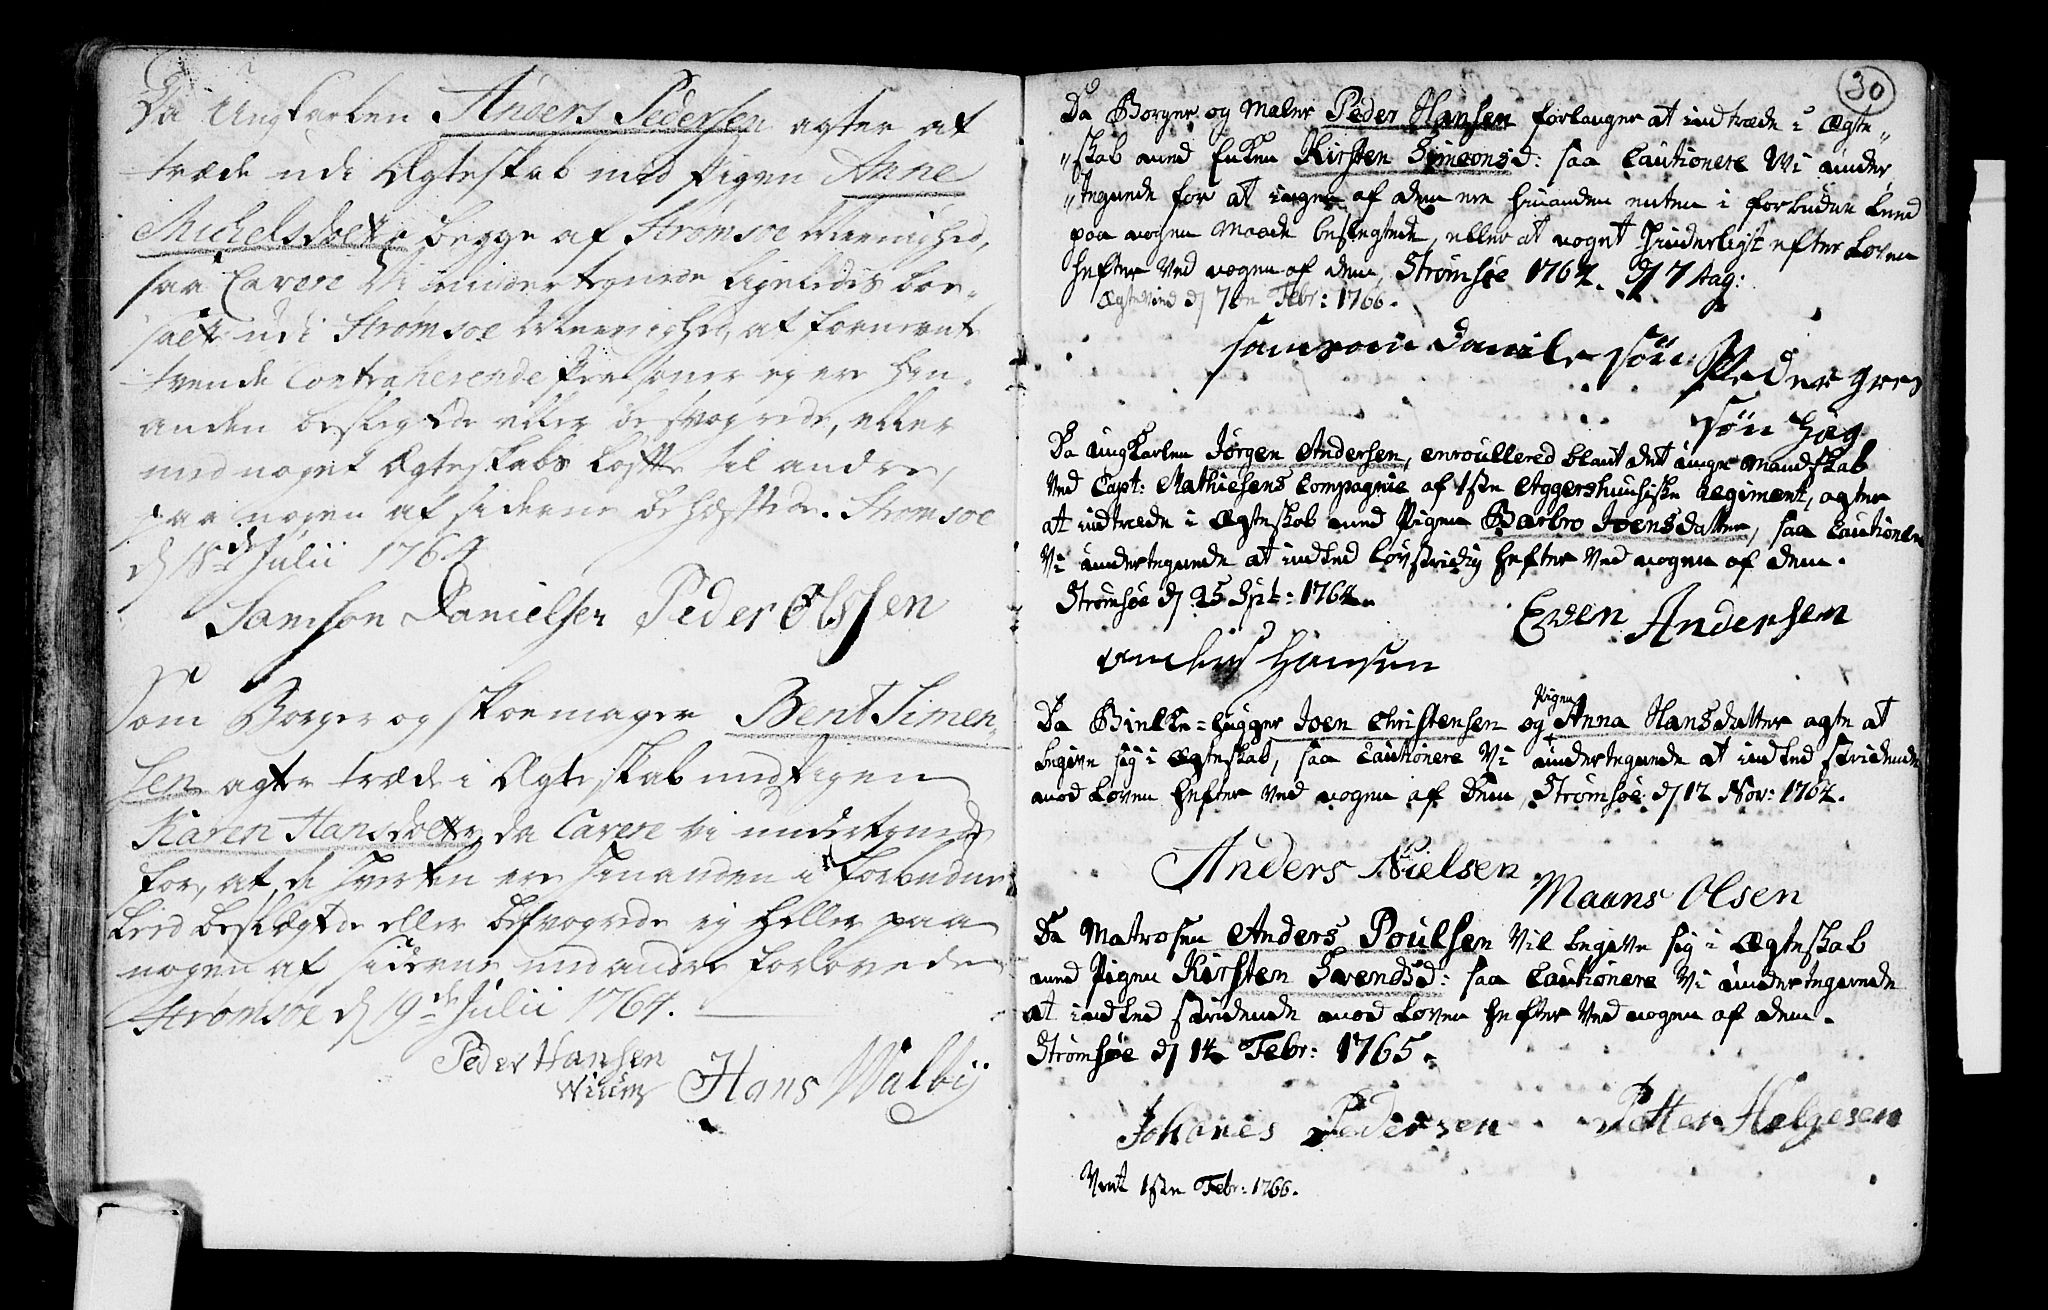 Da Ungkarlen Anders Pedersen agter at
træde udi Ægteskab med Pigen Anne
Michelsdotter begge af Strømsøe Meenighed,
saa Cavere Vi undertegnede ligeledis boe-
satte udi Strømsøe Meenighed, at foermente
tvende Contraherende Personer ej ere hin-
anden beslegtede eller besvogrede, eller
med noget Ægteskabs Løfte til andre,
paa nogen af siderne behæftede. Strømsoe
d 18de Julii 1764
Samson Danielsen Peder Olssen
Som Borger og skoemager Bent Simen-
sen agter træde i Ægteskab med Pigen
Karen Hansdotter da Cavere vi undertegnede
for, at de hverken ere hinanden i forbudne
Leed beslægtede eller besvogrede ej heller paa
nogen af siderne med andre forlovede
Strømsøe d 19de Julii 1764.
Peder Hansen
Hans Walbÿ
30
Da Borger og Maler Peder Hansen forlanger at indtræde i Ægte-
skab med Enken Kirsten Simonsd: saa Cautionere Vi under
tegnede for at ingen af dem ere hinanden enten i forbudne Leed
paa nogen Maade beslegtede, eller at noget hinderligt efter Loven
hefter ved nogen af dem, Strømsøe 1764. d 7 Aug:
Ægtevied d 7de Febr: 1766.
Samson Daniele søn Peder
søn
Da ungkarlen Jørgen Andersen, enroullered blant det unge Mandskab
ved Capt: Mathiesens Compagnie af 1ste Aggershuusiske Regiment, agter
at indtræde i Ægteskab med Pigen Barbro Joensdatter, saa Cautionere
Vi undertegnede at indted Lovstridig hefter ved nogen af dem.
Strømsøe d 25 Spt: 1764.
Even Andersen
Hansen
Pigen
Da Bielke-hugger Joen Christensen og Anna Hansdatter agte at
begive sig i Ægteskab, saa Cautionere Vi undertegnede at indted stridende
mod Loven hefter ved nogen af Dem, Strømsøe d 12 Nov: 1764.
Anders Nielsen
Maans Olsen
Da Matrosen Anders Poulsen vil begive sig i Ægteskab
med Pigen Kirsten Svendsd: saa Cautionere Vi undertegnede
at indted stridende mod Loven hefter ved nogen af dem.
Strømsøe d 14 Febr: 1765.
Johanes Pedersen Petter Helgesen
1ste Febr: 1766.